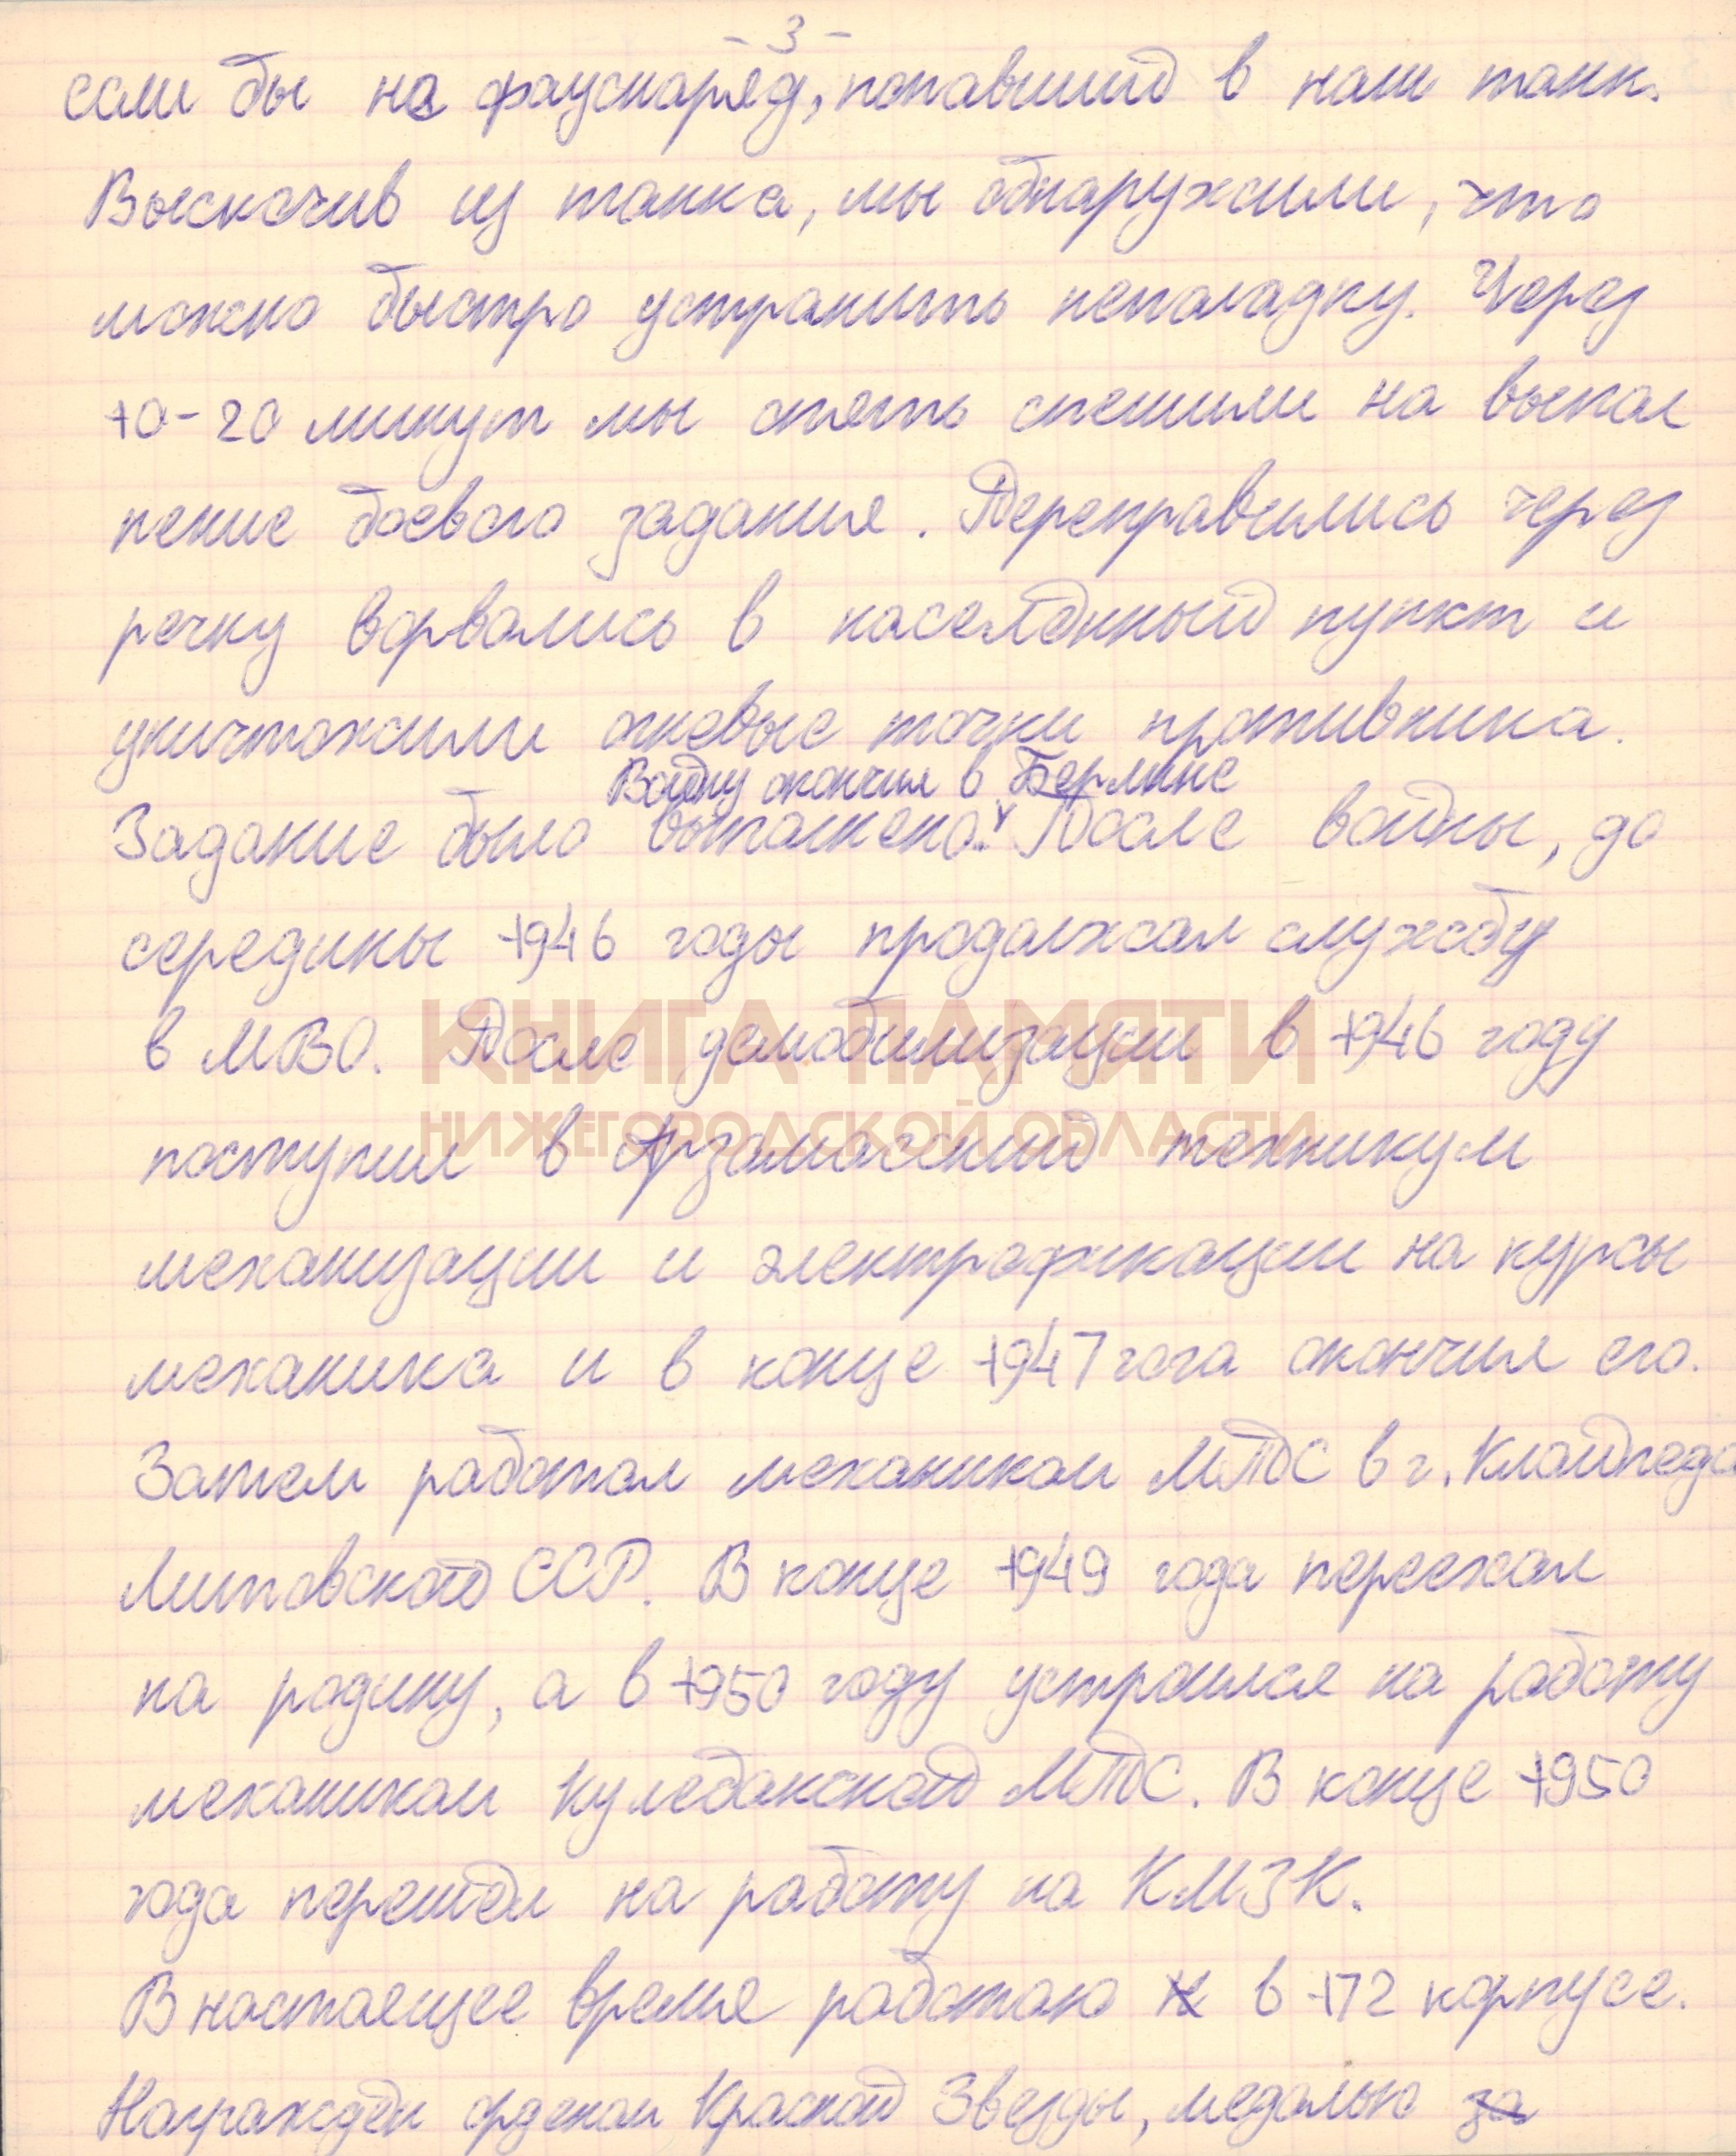 - 3 -
если бы не фауснаряд, попавший в наш танк.
Выскочив из танка, мы обнаружили, что
можно быстро устранить неполадку. Через
10-20 минут мы опять спешили на выпол
нение боевого задания. Переправились через
речку ворвались в населённый пункт и
уничтожили огневые точки противника.
Войну окончил в Берлине
Задание было выполнено. После войны, до
середины 1946 годы продолжал службу
в МВО. После демобилизации в 1946 году
КНИГА ПАМЯТИ
поступил в Арзамасский техникум
НИЖЕГОРОДСКОЙ ОБЛАСТИ
механизации и электрофикации на курсы
механика и в конце 1947 гога окончил его.
Затем работал механиком МТС в г. Клайпеда
Литовской ССР. В конце 1949 года переехал
на родину, а в 1950 году устроился на работу
механиком Кулебакской МТС. В конце 1950
года перешёл на работу на КМЗК.
В настоящее время работаю в 172 корпусе.
Награждён орденом Красной Звезды, медалью за